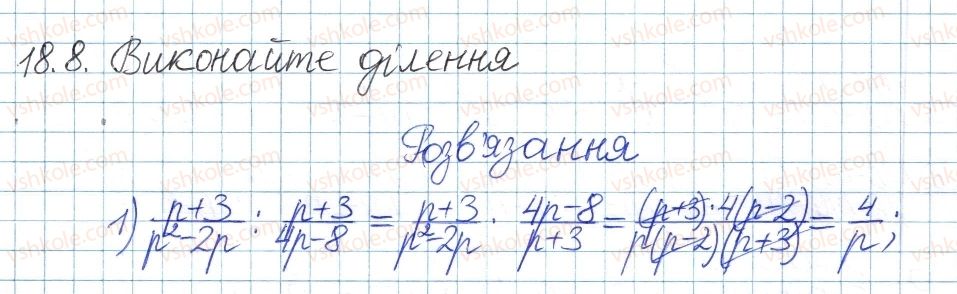 18.8. Виконайте ділення
Розв'язання
1) \frac{p+3}{p^2-2p} : \frac{p+3}{4p-8} = \frac{p+3}{p^2-2p} \cdot \frac{4p-8}{p+3} = \frac{(p+3) \cdot 4(p-2)}{p(p-2)(p+3)} = \frac{4}{p};